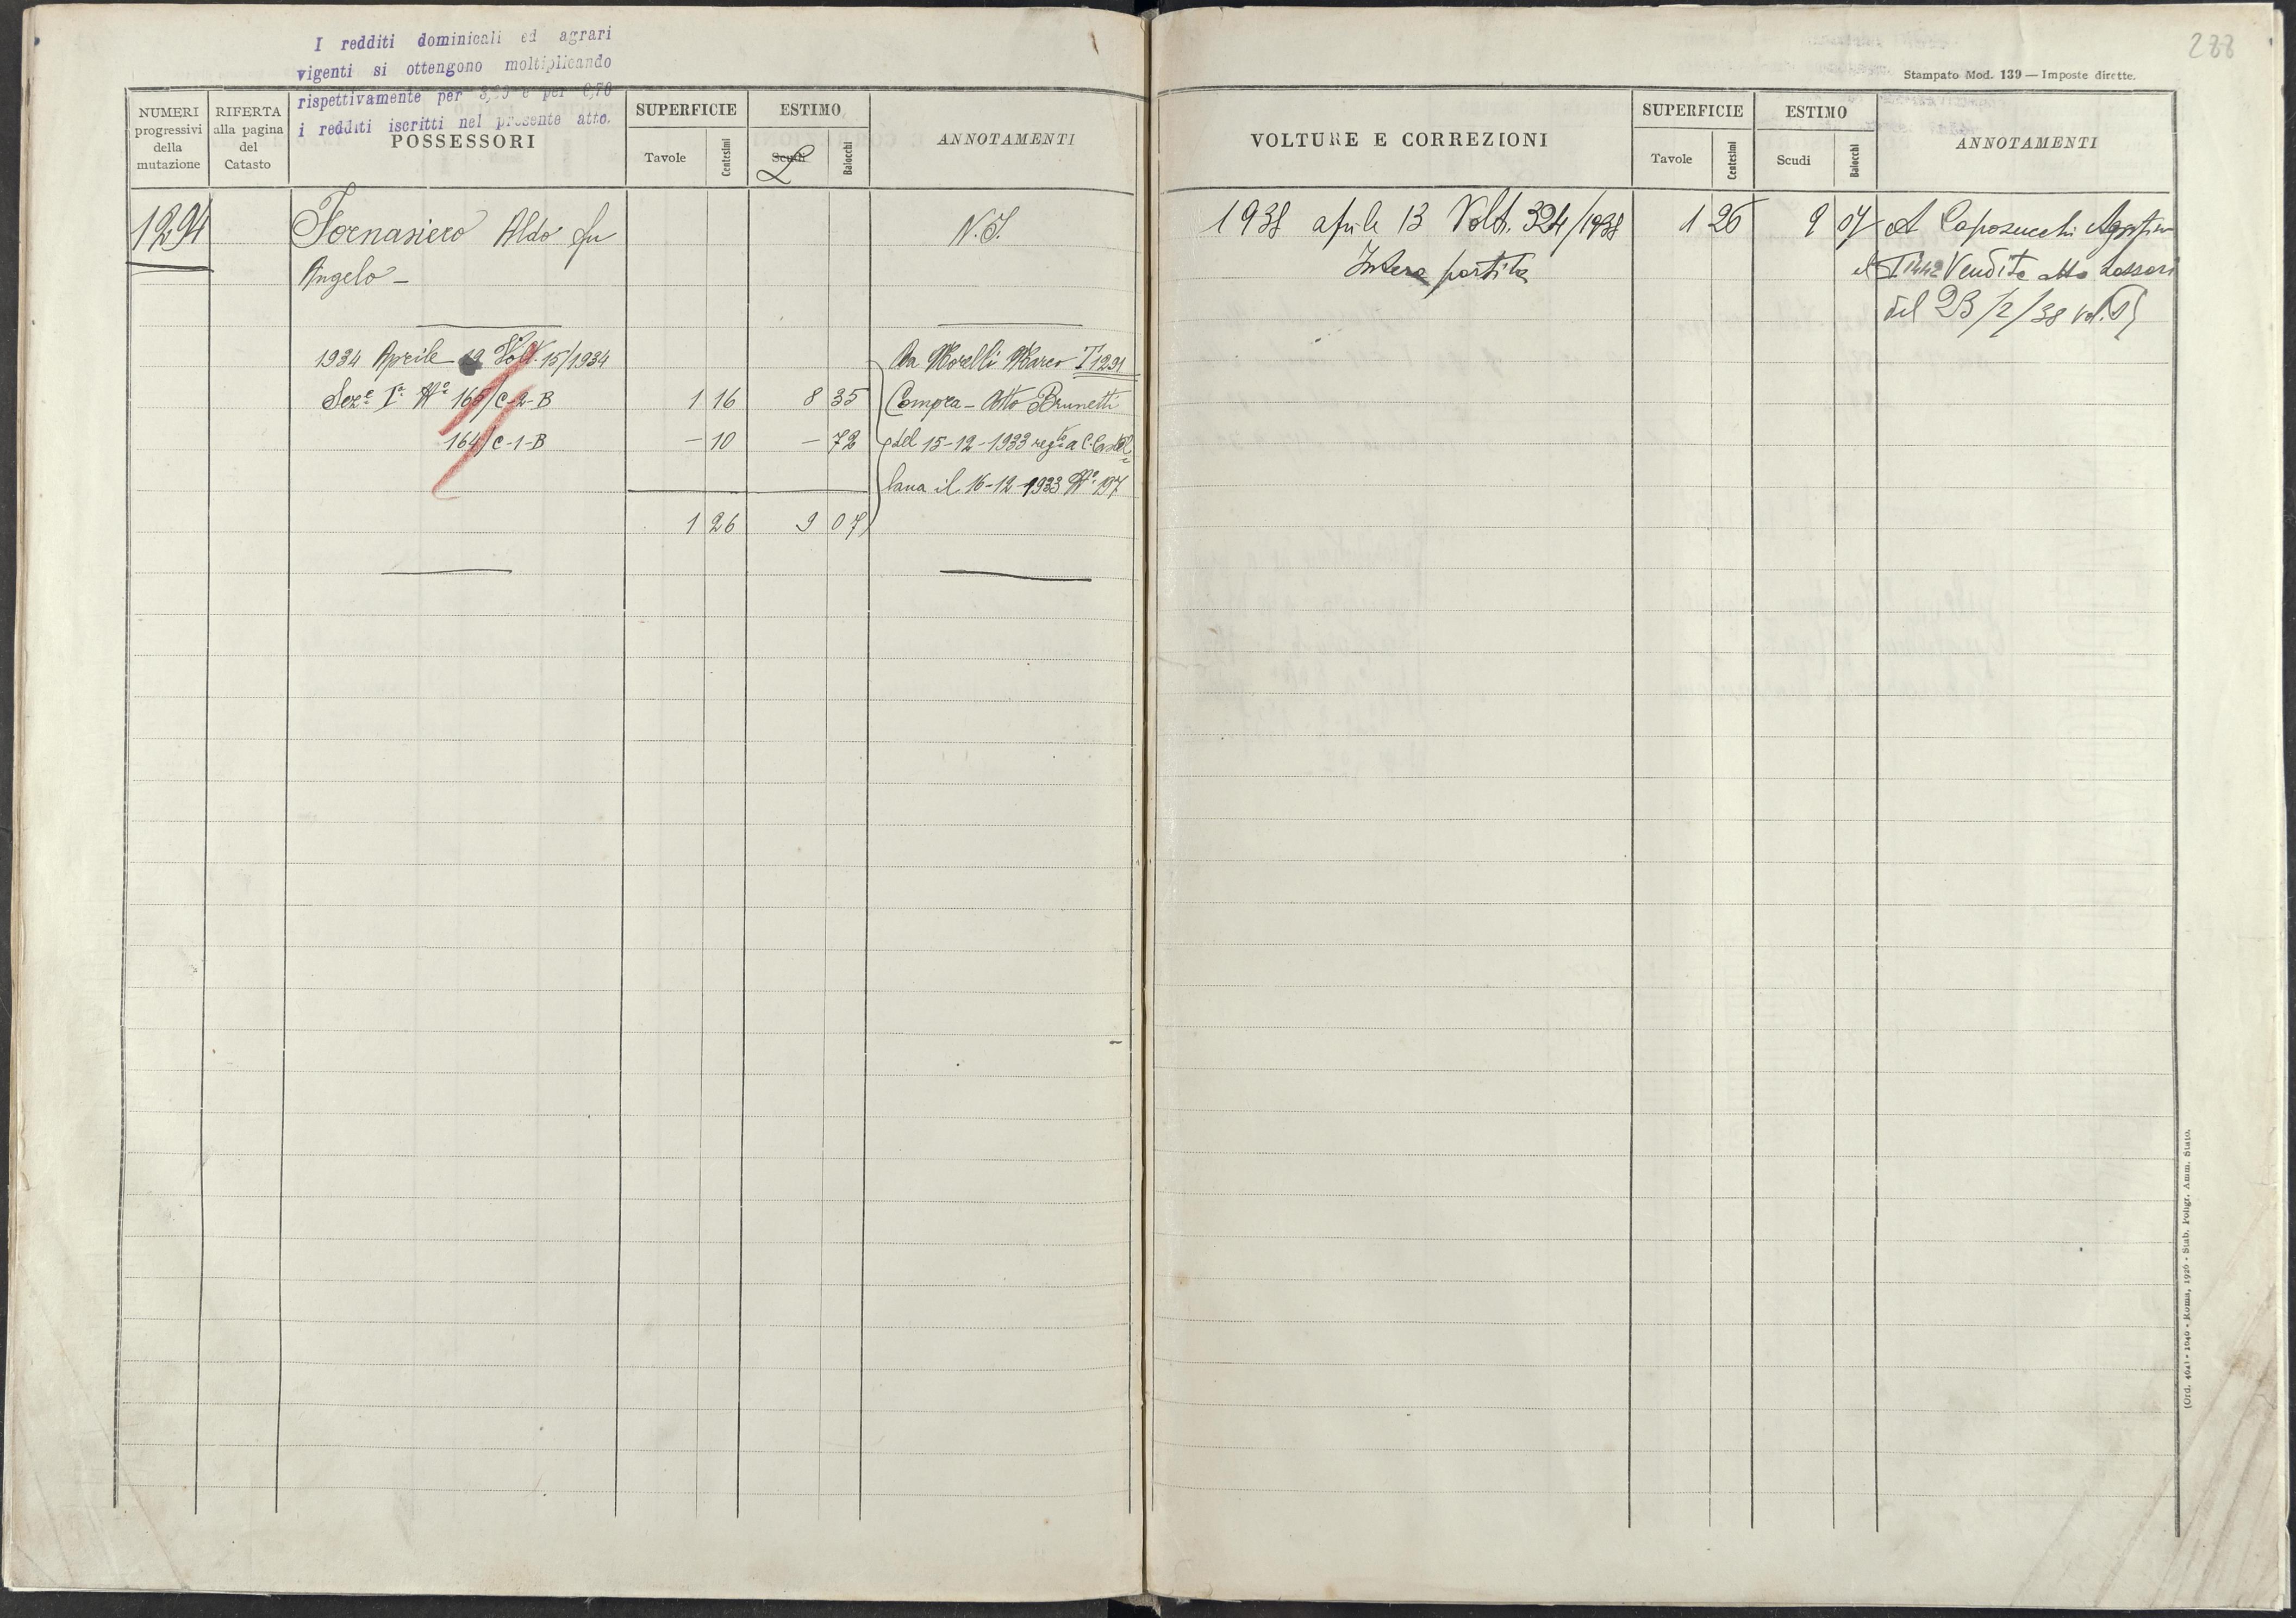 I redditi dominicali ed agrari
vigenti si ottengono moltiplicando
rispettivamente per e per 0,70
i redditi iscritti nel presente atto.
NUMERI progressivi della mutazione
RIFERTA alla pagina del Catasto
POSSESSORI
SUPERFICIE
Tavole
Centesimi
ESTIMO
Scudi
L
Baiocchi
ANNOTAMENTI
1294 Fornasiero Aldo fu N.I.
Angelo -
1934 Aprile 19 Volt. 15/1934 Da Morelli Marco T 1291
Sez.e I.a N.o 165/C-2-B 1 16 8 35 Compra - Atto Brunetti
164/C-1-B - 10 - 72 del 15-12-1933 reg.to a C. Castel
lana il 16-12-1933 N.o 197
1 26 9 07
288
Stampato Mod. 139 — Imposte dirette.
VOLTURE E CORREZIONI
SUPERFICIE
Tavole
Centesimi
ESTIMO
Scudi
Baiocchi
ANNOTAMENTI
1938 aprile 13 Volt. 324/1938 1 26 9 07 A Caposucchi Agostino
Intera partita T 1442 Vendita atto
del 23/2/38 vol.
(Ord. 4041 - 1040 - Roma, 1926 - Stab. Poligr. Amm. Stato.